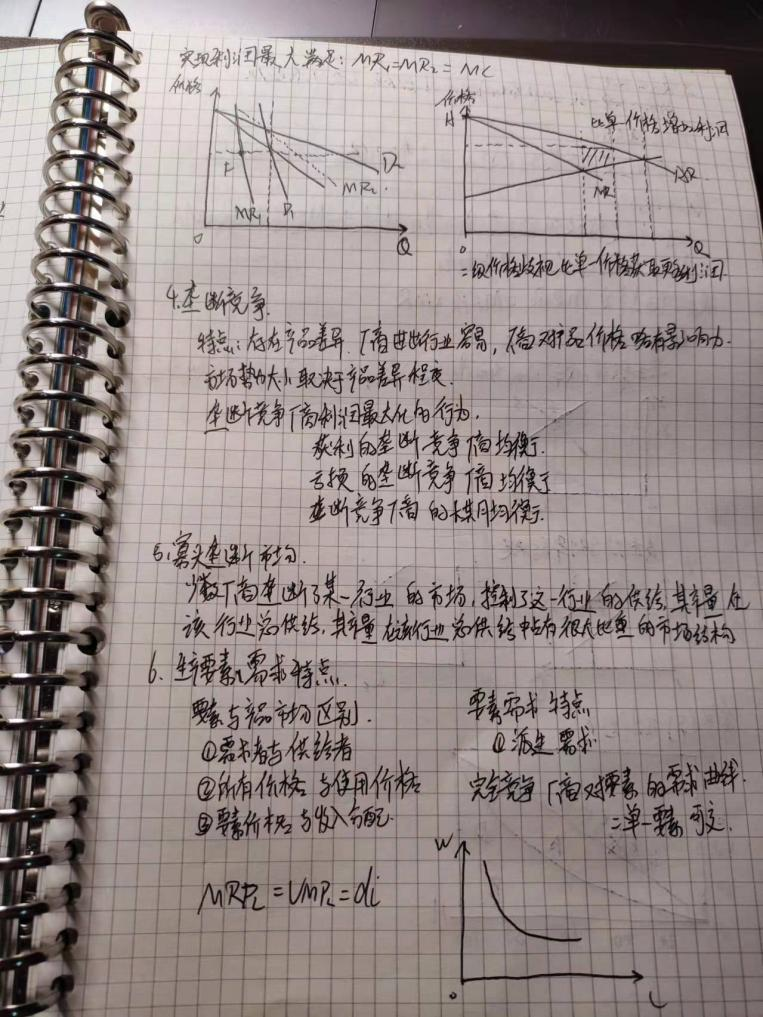 实现利润最大满足: MR₁=MR₂=MC
价格
D₂
MR₂
MR₁
D₁
O
Q
价格
比单一价格增加利润
MR
AR
O
Q
二级价格歧视比单一价格获取更多利润
4.垄断竞争.
特点: 存在产品差异, 厂商进出行业容易, 厂商对产品价格略有影响力.
市场势力大小取决于产品差异程度.
垄断竞争厂商利润最大化的行为.
获利的垄断竞争厂商均衡
亏损的垄断竞争厂商均衡
垄断竞争厂商的长期均衡.
5.寡头垄断市场.
少数厂商垄断了某一行业的市场, 控制了这一行业的供给, 其产量在
该行业总供给, 其产量在该行业总供给中占有很大比重的市场结构
6. 生产要素需求特点.
要素与产品市场区别.
①需求者与供给者
②所有价格与使用价格
③要素价格与收入分配.
要素需求特点
①派生需求
完全竞争厂商对要素的需求曲线.
=单一要素可变.
MRP_L=VMP_L=d_i
W
O
L